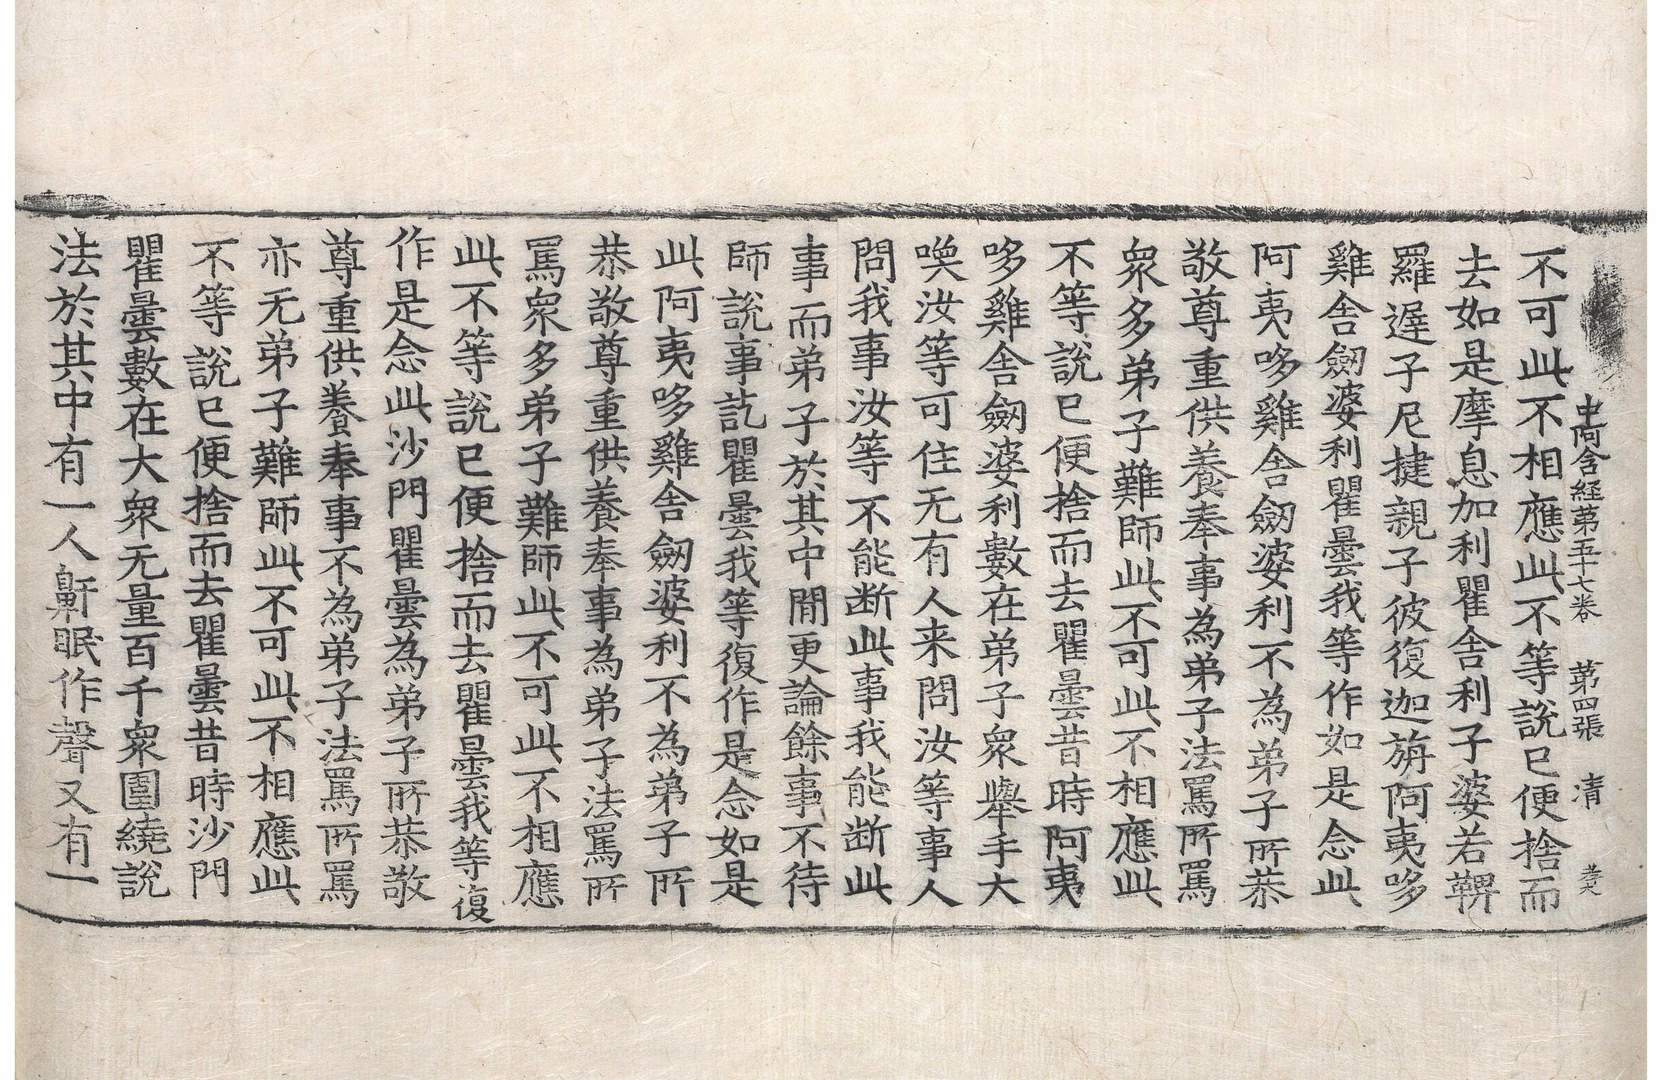 中阿含経第五十七卷 第四張 清
不可此不相應此不等說已便捨而
去如是摩息加利瞿舍利子婆若鞞
羅遟子尼揵親子彼復迦旃阿夷哆
雞舍劒婆利瞿曇我等作如是念此
阿夷哆雞舍劒婆利不為弟子所恭
敬尊重供養奉事為弟子法罵所罵
衆多弟子難師此不可此不相應此
不等說已便捨而去瞿曇昔時阿夷
哆雞舍劒婆利數在弟子衆舉手大
喚汝等可住无有人来問汝等事人
問我事汝等不能断此事我能断此
事而弟子於其中閒更論餘事不待
師說事訖瞿曇我等復作是念如是
此阿夷哆雞舍劒婆利不為弟子所
恭敬尊重供養奉事為弟子法罵所
罵衆多弟子難師此不可此不相應
此不等說已便捨而去瞿曇我等復
作是念此沙門瞿曇為弟子所恭敬
尊重供養奉事不為弟子法罵所罵
亦无弟子難師此不可此不相應此
不等說已便捨而去瞿曇昔時沙門
瞿曇數在大衆无量百千衆圍繞說
法於其中有一人鼾眠作聲又有一